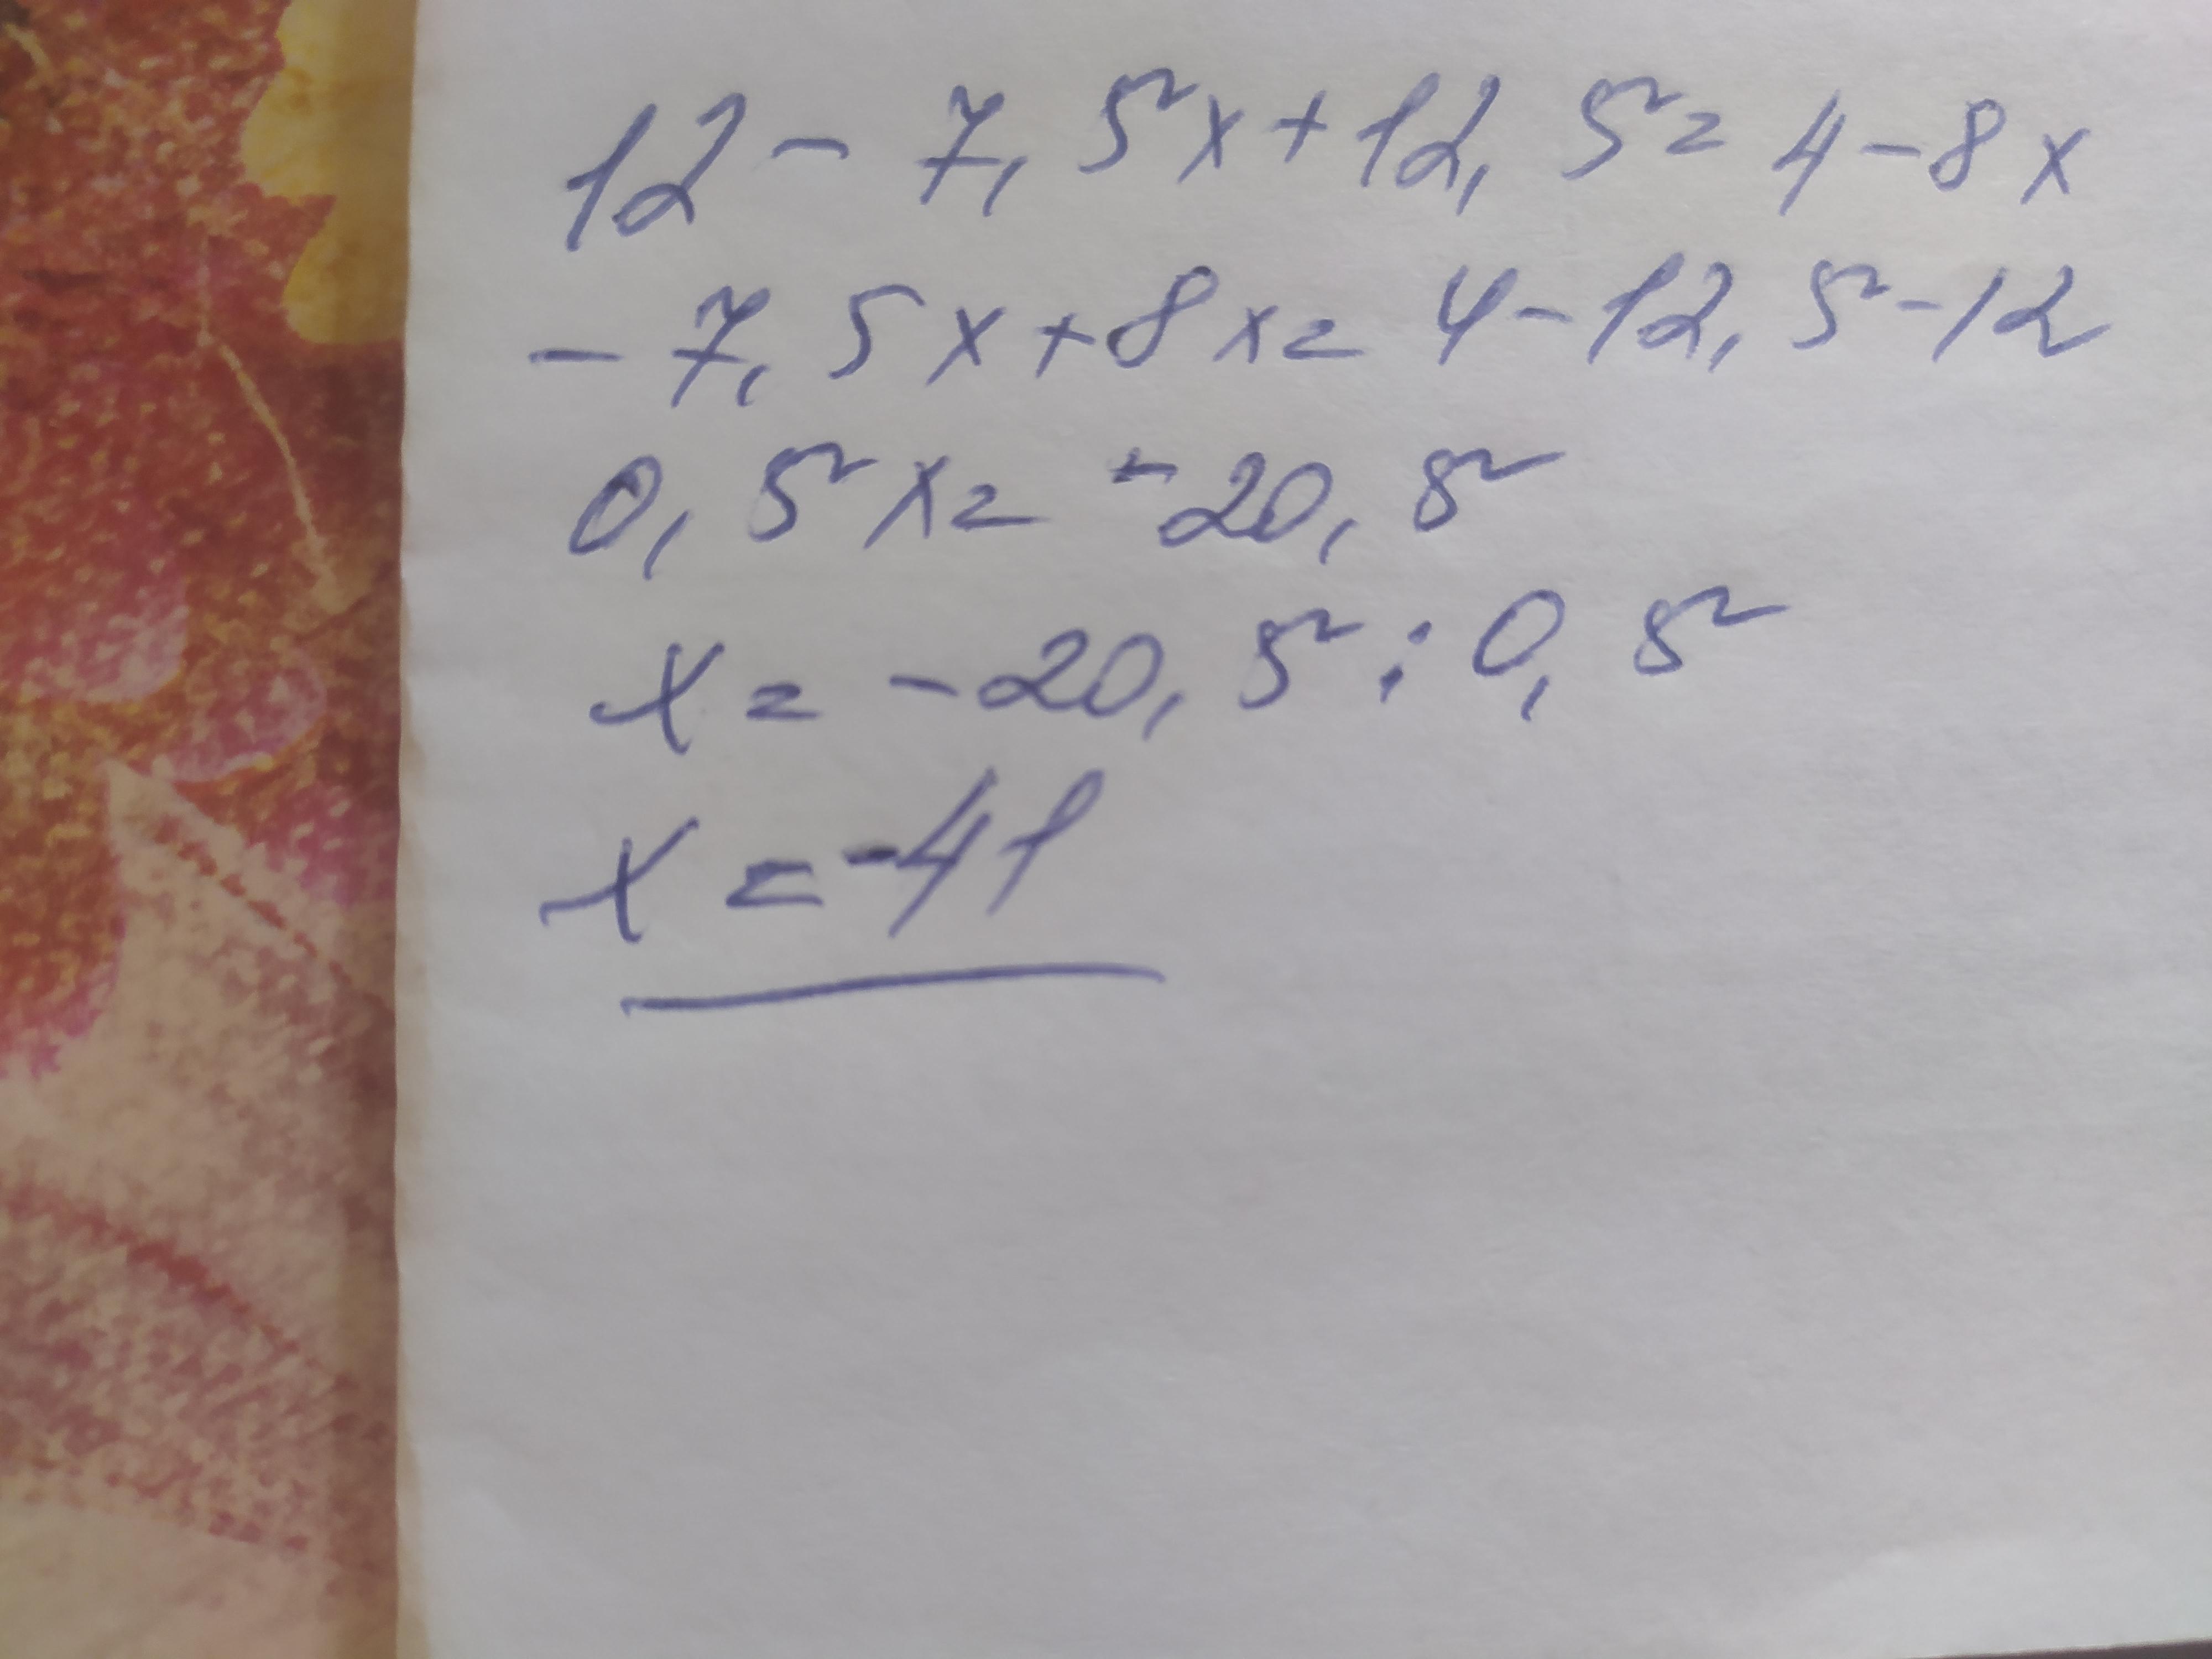 12 - 7,5x + 12,5 = 4 - 8x
- 7,5x + 8x = 4 - 12,5 - 12
0,5x = -20,5
x = -20,5 : 0,5
x = -41